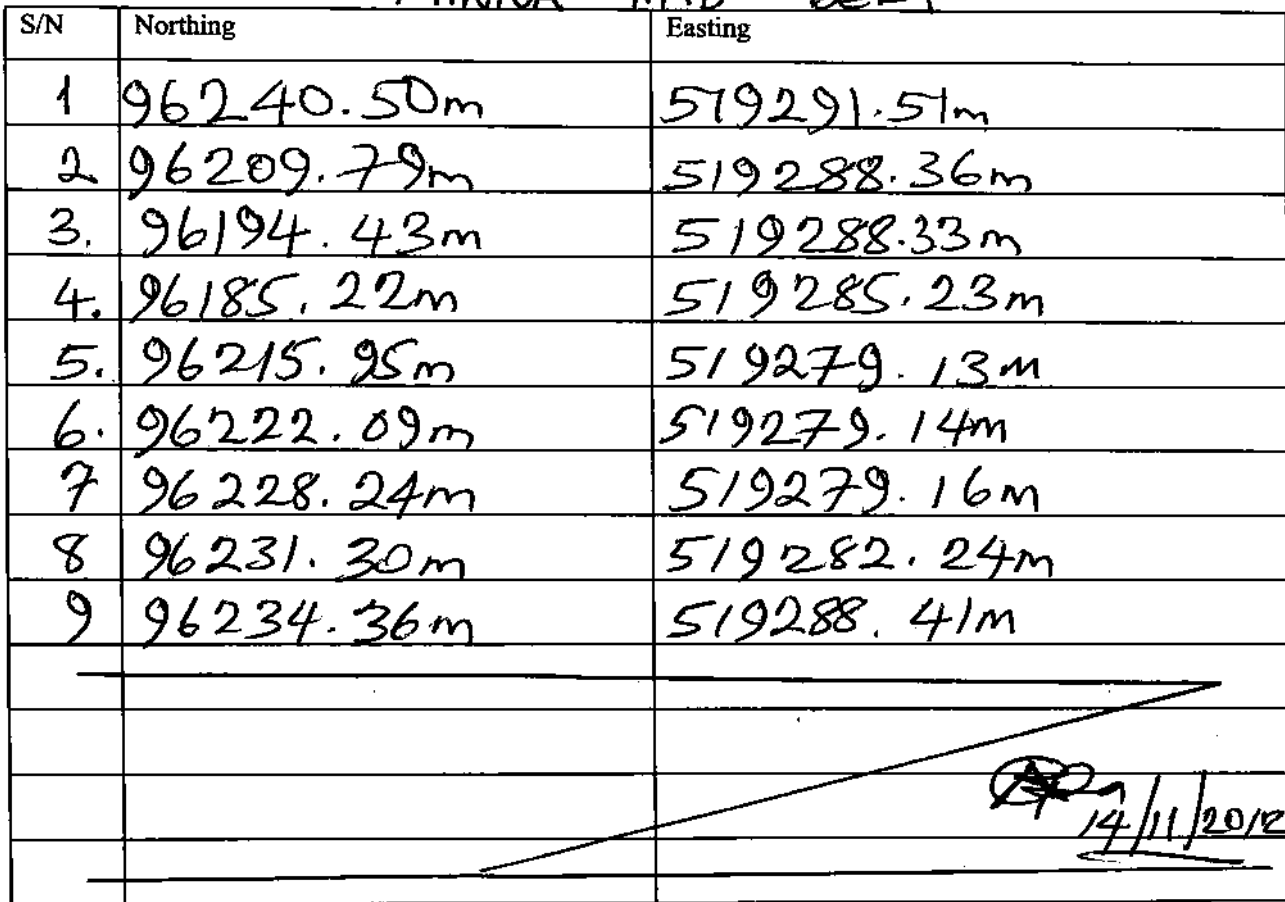 MINNA MID BELT
S/N Northing Easting
1 96240.50m 519291.51m
2 96209.79m 519288.36m
3. 96194.43m 519288.33m
4. 96185.22m 519285.23m
5. 96215.95m 519279.13m
6. 96222.09m 519279.14m
7 96228.24m 519279.16m
8 96231.30m 519282.24m
9 96234.36m 519288.41m
14/11/2012